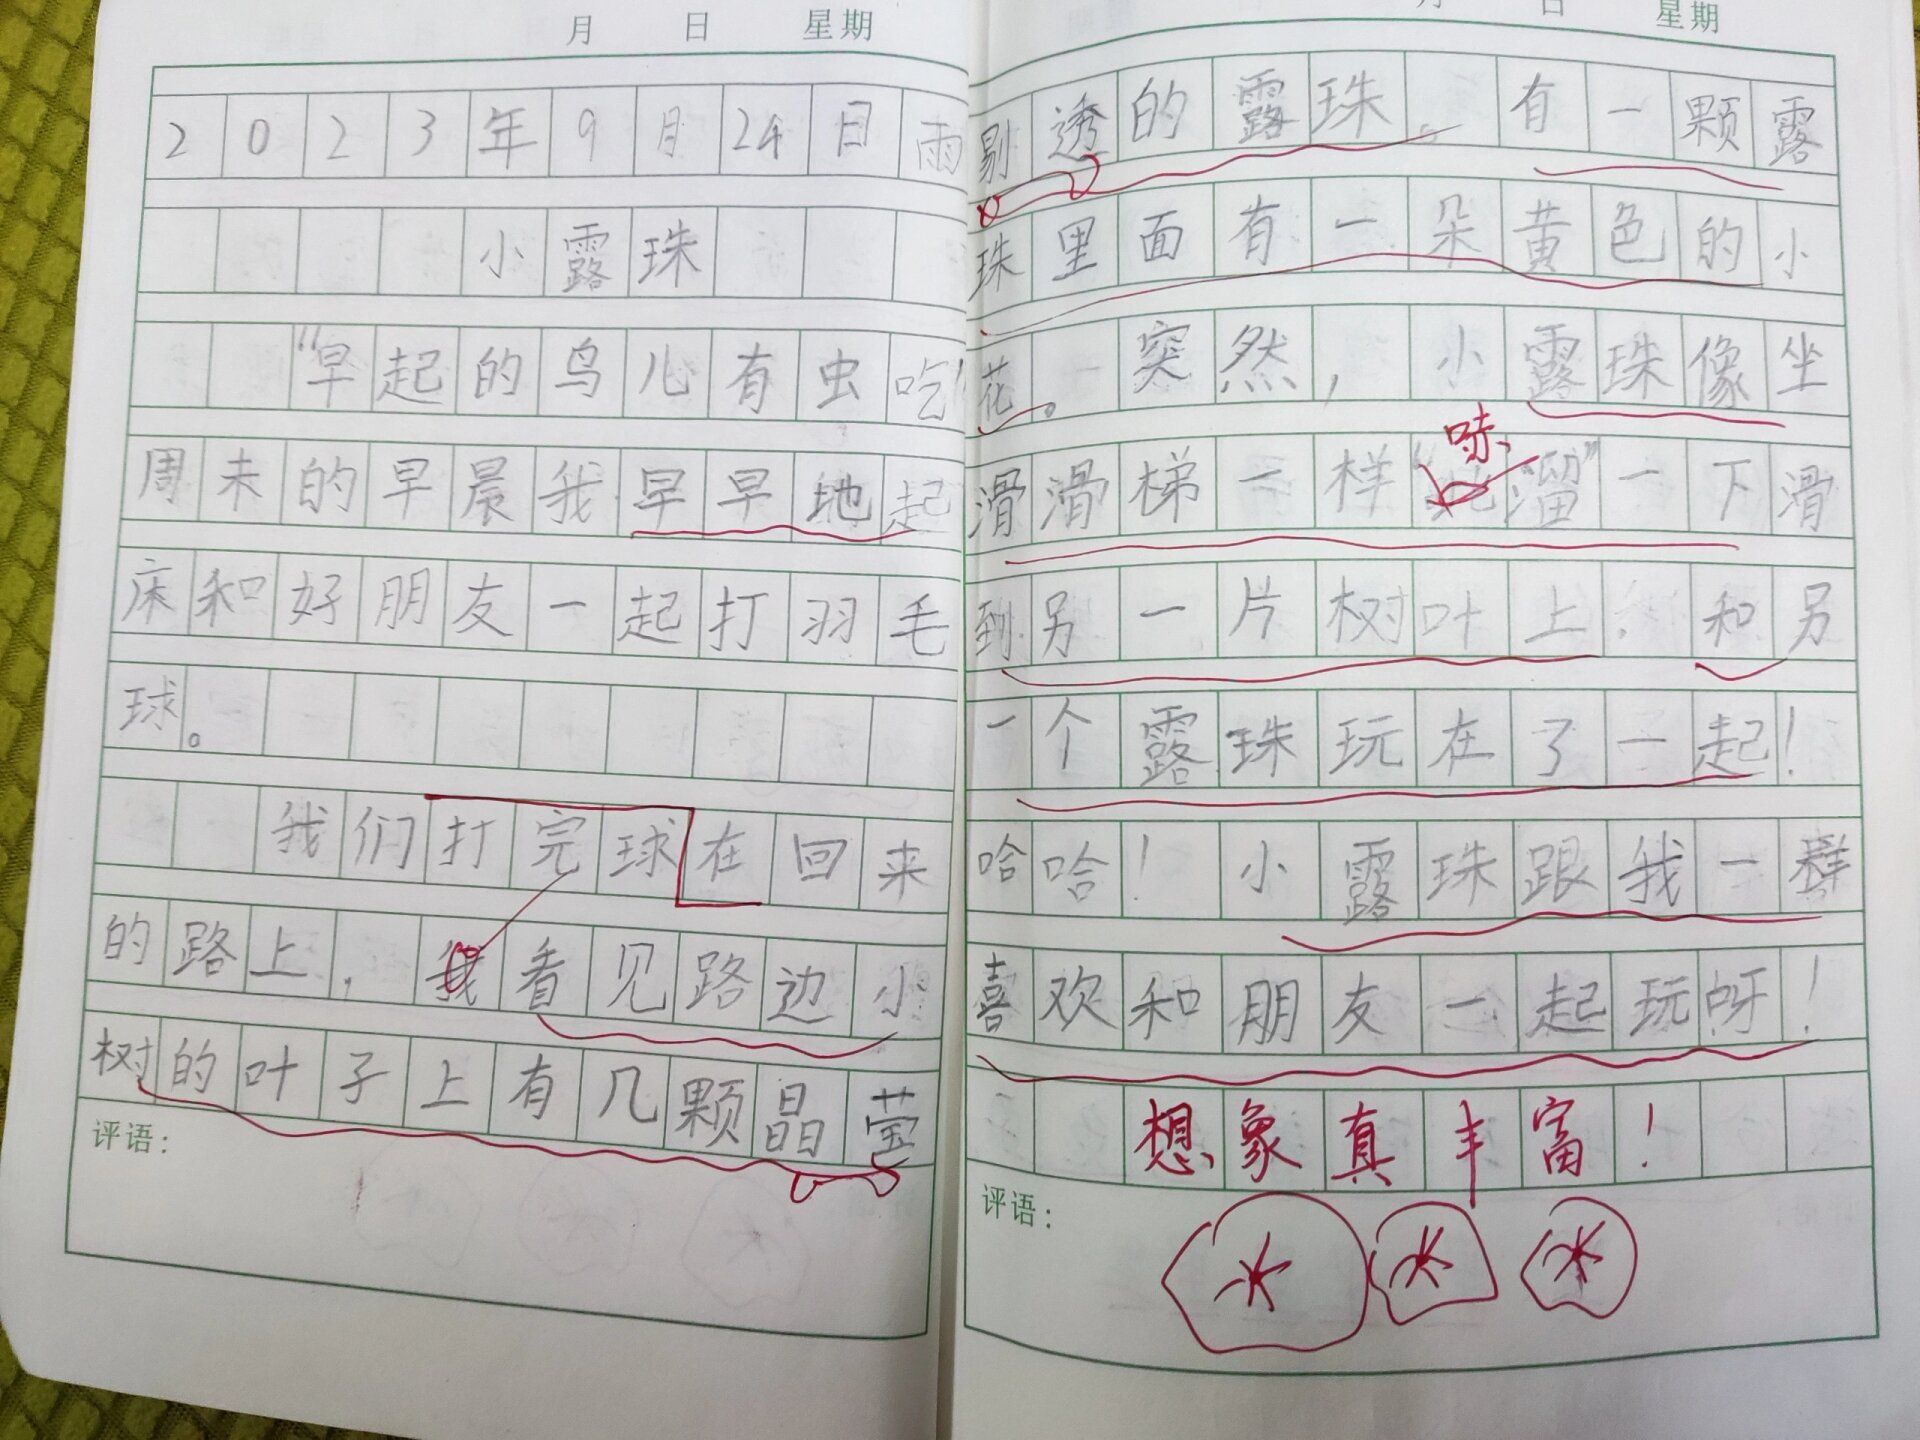 月 日 星期
2023年9月24日 雨
小露珠
“早起的鸟儿有虫吃”
周末的早晨我早早地起
床和好朋友一起打羽毛
球。
我们打完球在回来
的路上，我看见路边小
树的叶子上有几颗晶莹
评语：
月 日 星期
剔透的露珠。有一颗露
珠里面有一朵黄色的小
花。突然，小露珠像坐
滑滑梯一样“溜”一下滑
哧
到另一片树叶上，和另
一个露珠玩在了一起！
哈哈！小露珠跟我一群
喜欢和朋友一起玩呀！
想象真丰富！
评语：